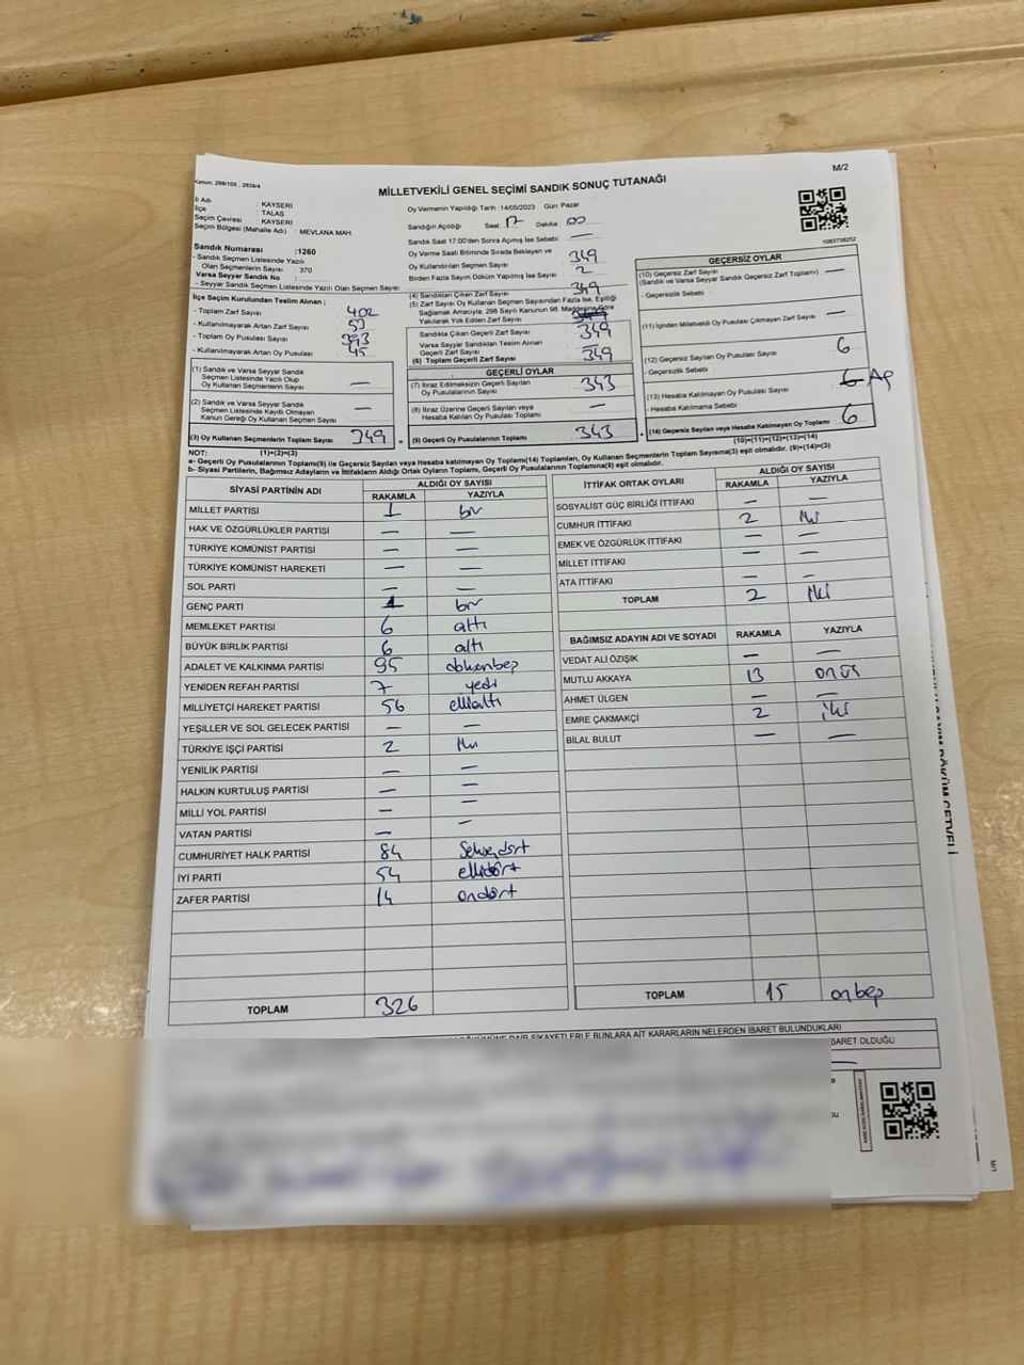 M/2
MİLLETVEKİLİ GENEL SEÇİMİ SANDIK SONUÇ TUTANAĞI
İl Adı : KAYSERİ
İlçe : TALAS
Seçim Çevresi : KAYSERİ
Seçim Bölgesi (Mahalle Adı) : MEVLANA MAH.
Sandık Numarası :1260
- Sandık Seçmen Listesinde Yazılı
Olan Seçmenlerin Sayısı : 370
Varsa Seyyar Sandık No :
- Seyyar Sandık Seçmen Listesinde Yazılı Olan Seçmen Sayısı:
İlçe Seçim Kurulundan Teslim Alınan :
- Toplam Zarf Sayısı : 402
- Kullanılmayarak Artan Zarf Sayısı : 53
- Toplam Oy Pusulası Sayısı : 393
- Kullanılmayarak Artan Oy Pusulası : 45
(1) Sandık ve Varsa Seyyar Sandık
Seçmen Listesinde Yazılı Olup
Oy Kullanan Seçmenlerin Sayısı —
(2) Sandık ve Varsa Seyyar Sandık
Seçmen Listesinde Kaydı Olmayan
Kanun Gereği Oy Kullanan Seçmen Sayısı —
(3) Oy Kullanan Seçmenlerin Toplam Sayısı 349
(1)+(2)=(3)
Oy Vermenin Yapıldığı Tarih :14/05/2023 Gün: Pazar
Sandığın Açıldığı Saat: 17 Dakika: 00
Sandık Saat 17:00'den Sonra Açılmış İse Sebebi: —
Oy Verme Saati Bitiminde Sırada Bekleyen ve
Oy Kullandırılan Seçmen Sayısı: 349
Birden Fazla Sayım Döküm Yapılmış İse Sayısı: 2
(4) Sandıktan Çıkan Zarf Sayısı: 349
(5) Zarf Sayısı Oy Kullanan Seçmen Sayısından Fazla İse, Eşitliği
Sağlamak Amacıyla, 298 Sayılı Kanunun 98. Maddesine Göre
Yakılarak Yok Edilen Zarf Sayısı:
Sandıkta Çıkan Geçerli Zarf Sayısı 349
Varsa Seyyar Sandıktan Teslim Alınan
Geçerli Zarf Sayısı —
(6) Toplam Geçerli Zarf Sayısı 349
GEÇERLİ OYLAR
(7) İtiraz Edilmeksizin Geçerli Sayılan
Oy Pusulalarının Sayısı 343
(8) İtiraz Üzerine Geçerli Sayılan veya
Hesaba Katılan Oy Pusulası Toplamı —
(9) Geçerli Oy Pusulalarının Toplamı 343
1083738252
GEÇERSİZ OYLAR
(10) Geçersiz Zarf Sayısı —
(Sandık ve Varsa Seyyar Sandık Geçersiz Zarf Toplamı)
- Geçersizlik Sebebi
(11) İçinden Milletvekili Oy Pusulası Çıkmayan Zarf Sayısı —
(12) Geçersiz Sayılan Oy Pusulası Sayısı 6
- Geçersizlik Sebebi
(13) Hesaba Katılmayan Oy Pusulası Sayısı 6
- Hesaba Katılmama Sebebi
(14) Geçersiz Sayılan veya Hesaba Katılmayan Oy Toplamı 6
(10)+(11)+(12)+(13)=(14)
NOT:
a- Geçerli Oy Pusulalarının Toplamı(9) ile Geçersiz Sayılan veya Hesaba katılmayan Oy Toplamı(14) Toplamları, Oy Kullanan Seçmenlerin Toplam Sayısına(3) eşit olmalıdır. (9)+(14)=(3)
b- Siyasi Partilerin, Bağımsız Adayların ve İttifakların Aldığı Ortak Oyların Toplamı, Geçerli Oy Pusulaları Toplamına(9) eşit olmalıdır.
SİYASİ PARTİNİN ADI ALDIĞI OY SAYISI
RAKAMLA YAZIYLA
MİLLET PARTİSİ 1 bir
HAK VE ÖZGÜRLÜKLER PARTİSİ — —
TÜRKİYE KOMÜNİST PARTİSİ — —
TÜRKİYE KOMÜNİST HAREKETİ — —
SOL PARTİ — —
GENÇ PARTİ 1 bir
MEMLEKET PARTİSİ 6 altı
BÜYÜK BİRLİK PARTİSİ 6 altı
ADALET VE KALKINMA PARTİSİ 95 doksanbeş
YENİDEN REFAH PARTİSİ 7 yedi
MİLLİYETÇİ HAREKET PARTİSİ 56 ellialtı
YEŞİLLER VE SOL GELECEK PARTİSİ — —
TÜRKİYE İŞÇİ PARTİSİ 2 iki
YENİLİK PARTİSİ — —
HALKIN KURTULUŞ PARTİSİ — —
MİLLİ YOL PARTİSİ — —
VATAN PARTİSİ — —
CUMHURİYET HALK PARTİSİ 84 Seksendört
İYİ PARTİ 54 ellidört
ZAFER PARTİSİ 14 ondört
TOPLAM 326
İTTİFAK ORTAK OYLARI ALDIĞI OY SAYISI
RAKAMLA YAZIYLA
SOSYALİST GÜÇ BİRLİĞİ İTTİFAKI — —
CUMHUR İTTİFAKI 2 iki
EMEK VE ÖZGÜRLÜK İTTİFAKI — —
MİLLET İTTİFAKI — —
ATA İTTİFAKI — —
TOPLAM 2 iki
BAĞIMSIZ ADAYIN ADI VE SOYADI RAKAMLA YAZIYLA
VEDAT ALİ ÖZIŞIK — —
MUTLU AKKAYA 13 onüç
AHMET ÜLGEN — —
EMRE ÇAKMAKÇİ 2 iki
BİLAL BULUT — —
TOPLAM 15 onbeş
DAİR ŞİKAYETLERLE BUNLARA AİT KARARLARIN NELERDEN İBARET BULUNDUKLARI
İBARET OLDUĞU